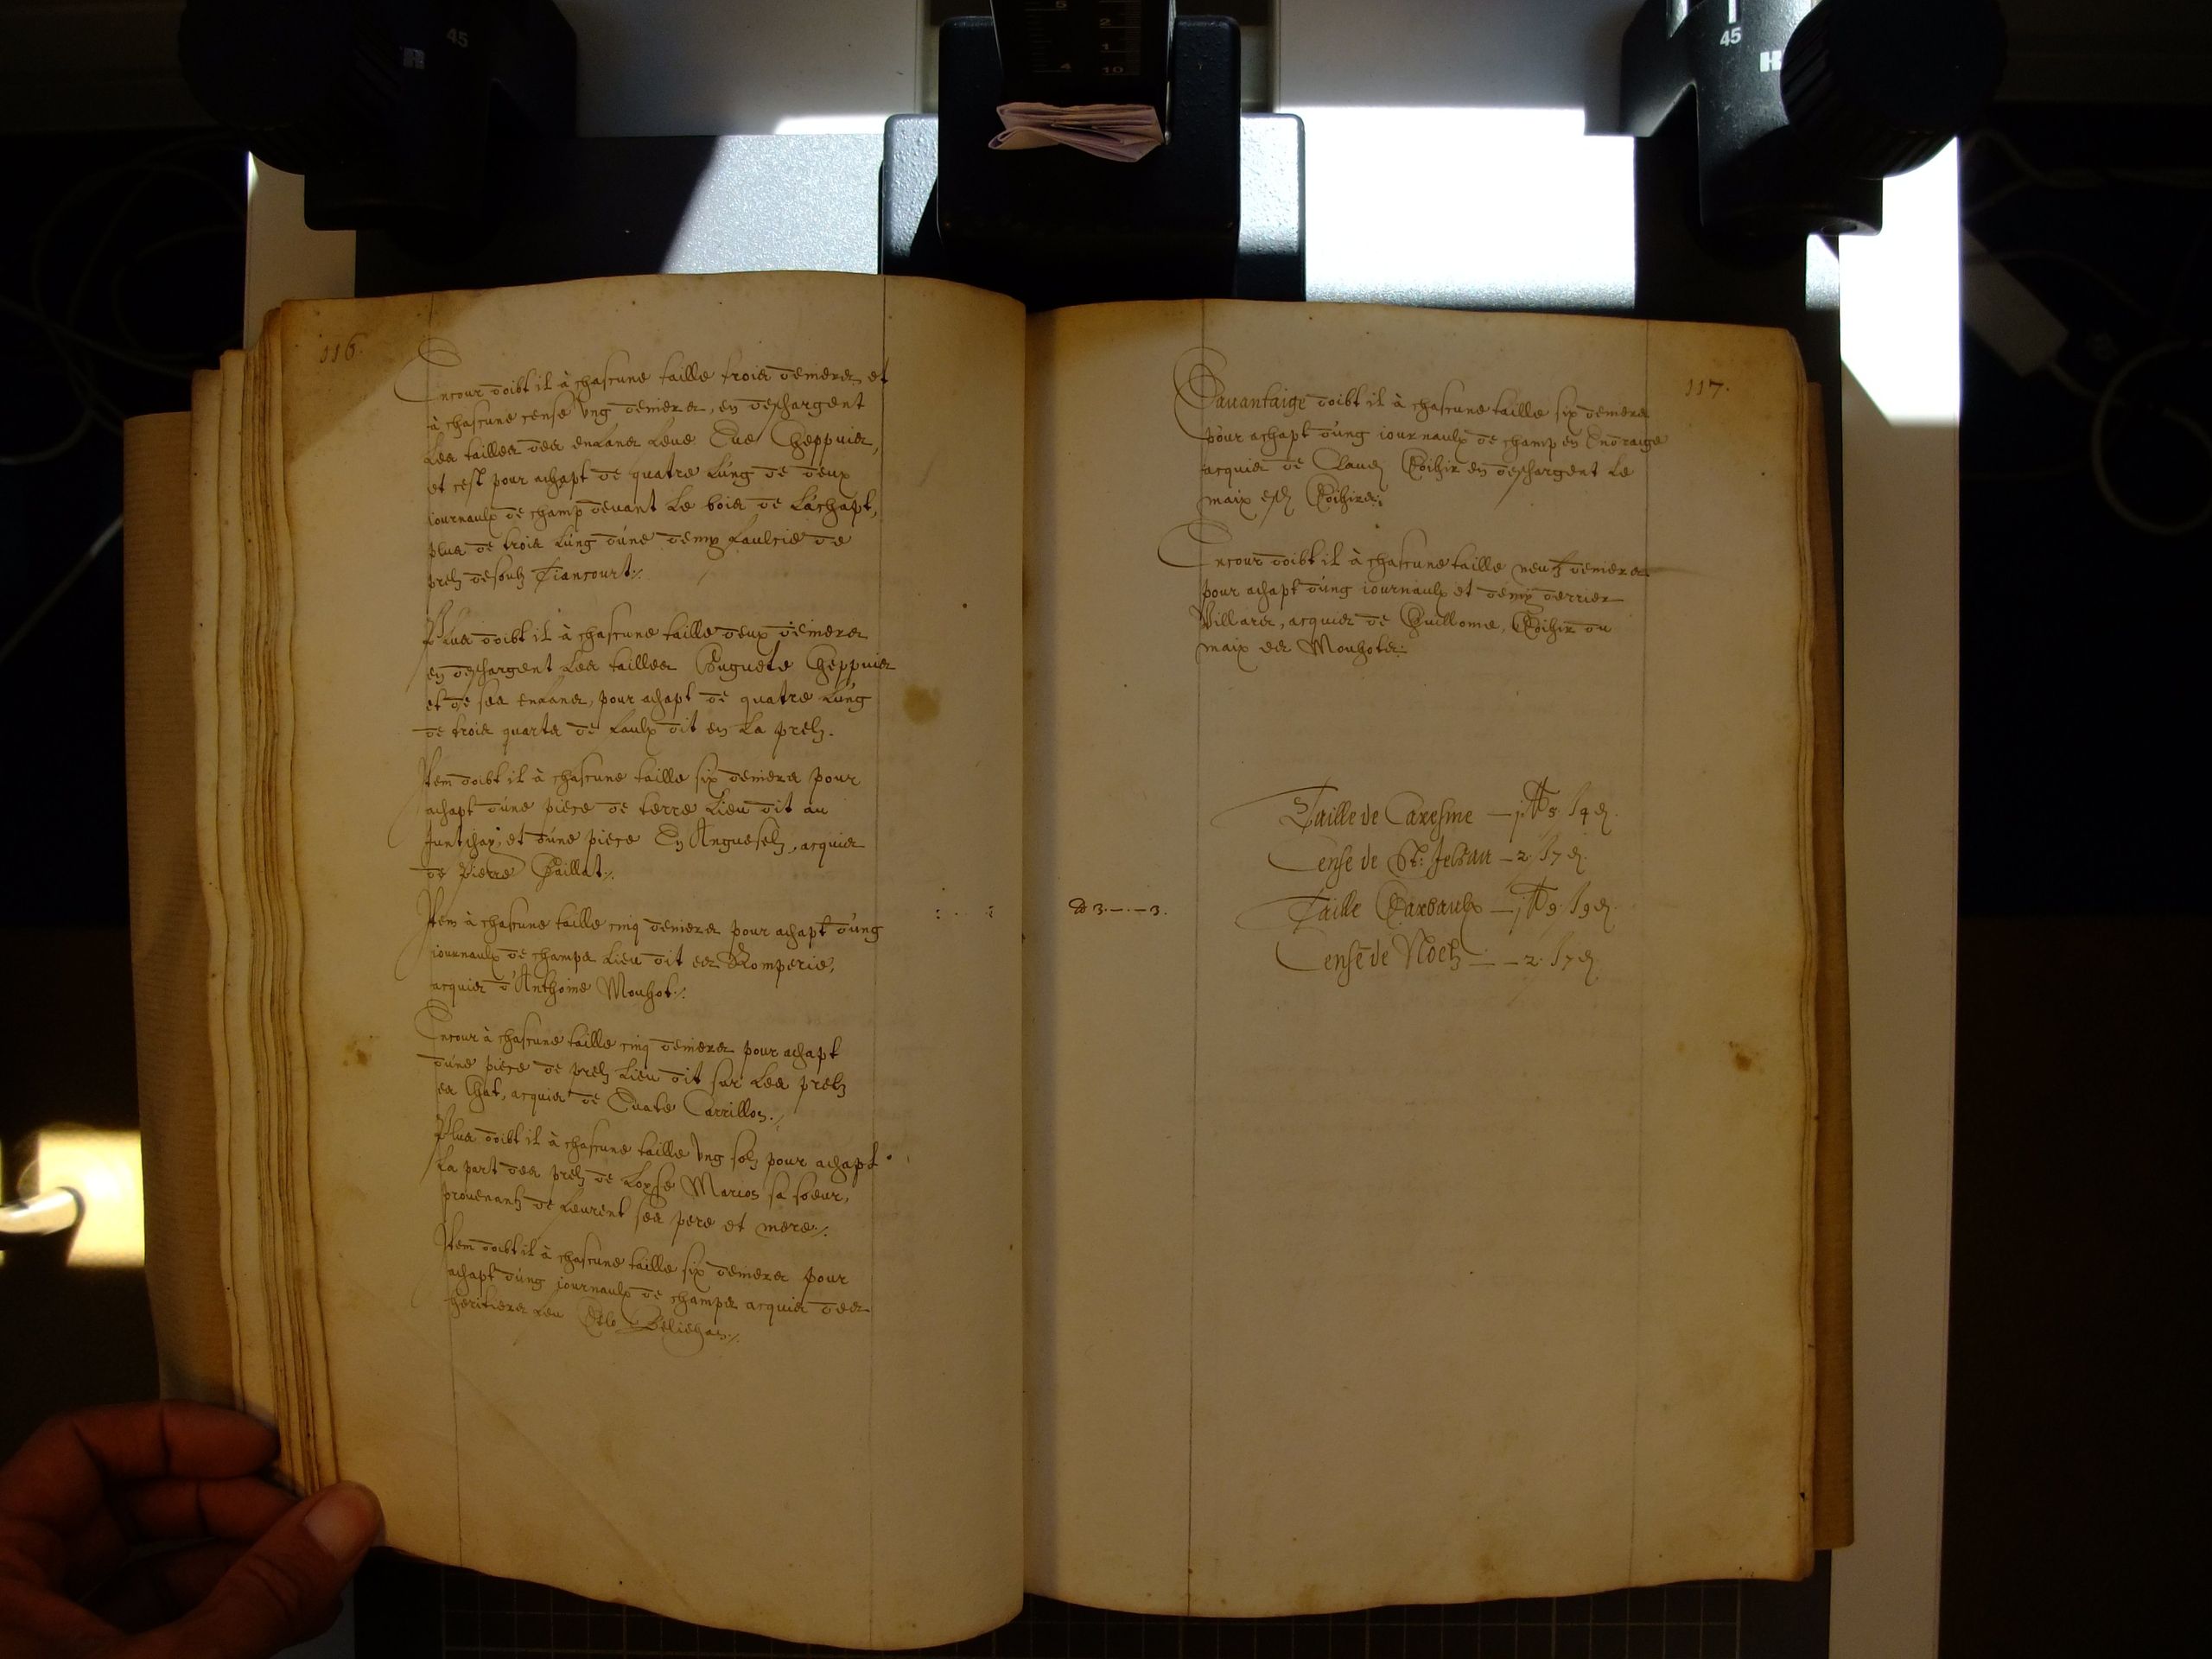 116.
Encour doibt il à chascune taille trois deniers et
à chascune cense ung deniers, en deschargent
les tailles des enfans feue Cheppuis,
et cest pour achapt de quatre lung de deux
journaulx de champ devant le bois de Lachapt,
plus de trois lung d'une demy faulcie de
prelz desoubz Tiancourt./.
Plus doibt il à chascune taille deux deniers
en deschargent les tailles Huguete Cheppuis
et de ses enfans, pour achapt de quatre lung
de trois quarts de faulx dit en la prelz.
Item doibt il à chascune taille six deniers pour
achapt d'une piece de terre lieu dit au
et d'une piece En acquis
de Pierre Paillat./.
Item à chascune taille cinq deniers pour achapt d'ung
journaulx de champs lieu dit es Romperie,
acquis d'Anthoine Mouhot./.
Encour à chascune taille cinq deniers pour achapt
d'une piece de prelz lieu dit sur les prelz
es Chat, acquis de Carrillon./.
Plus doibt il à chascune taille ung solz pour achapt
la part des prelz de Loyse Marion sa soeur,
provenantz de feurent ses pere et mere./.
Item doibt il à chascune taille six deniers pour
achapt d'ung journaulx de champs acquis des
heritiers feu
117.
Davantaige doibt il à chascune taille six deniers
pour achapt d'ung journaulx de champ en
acquis de Claude en deschargent le
maix
Encour doibt il à chascune taille neuf deniers
pour achapt d'ung journaulx et demy derrier
Villars, acquis de Guillome, du
maix es Mouhots./.
Taille de Caresme — 8. 4 d.
Cense de St. Jehan — 2. 7 d.
3. — . — 3.
Taille — 9. 9 d.
Cense de Noelz — 2. 7 d.
45
45
5
4
2
1
10